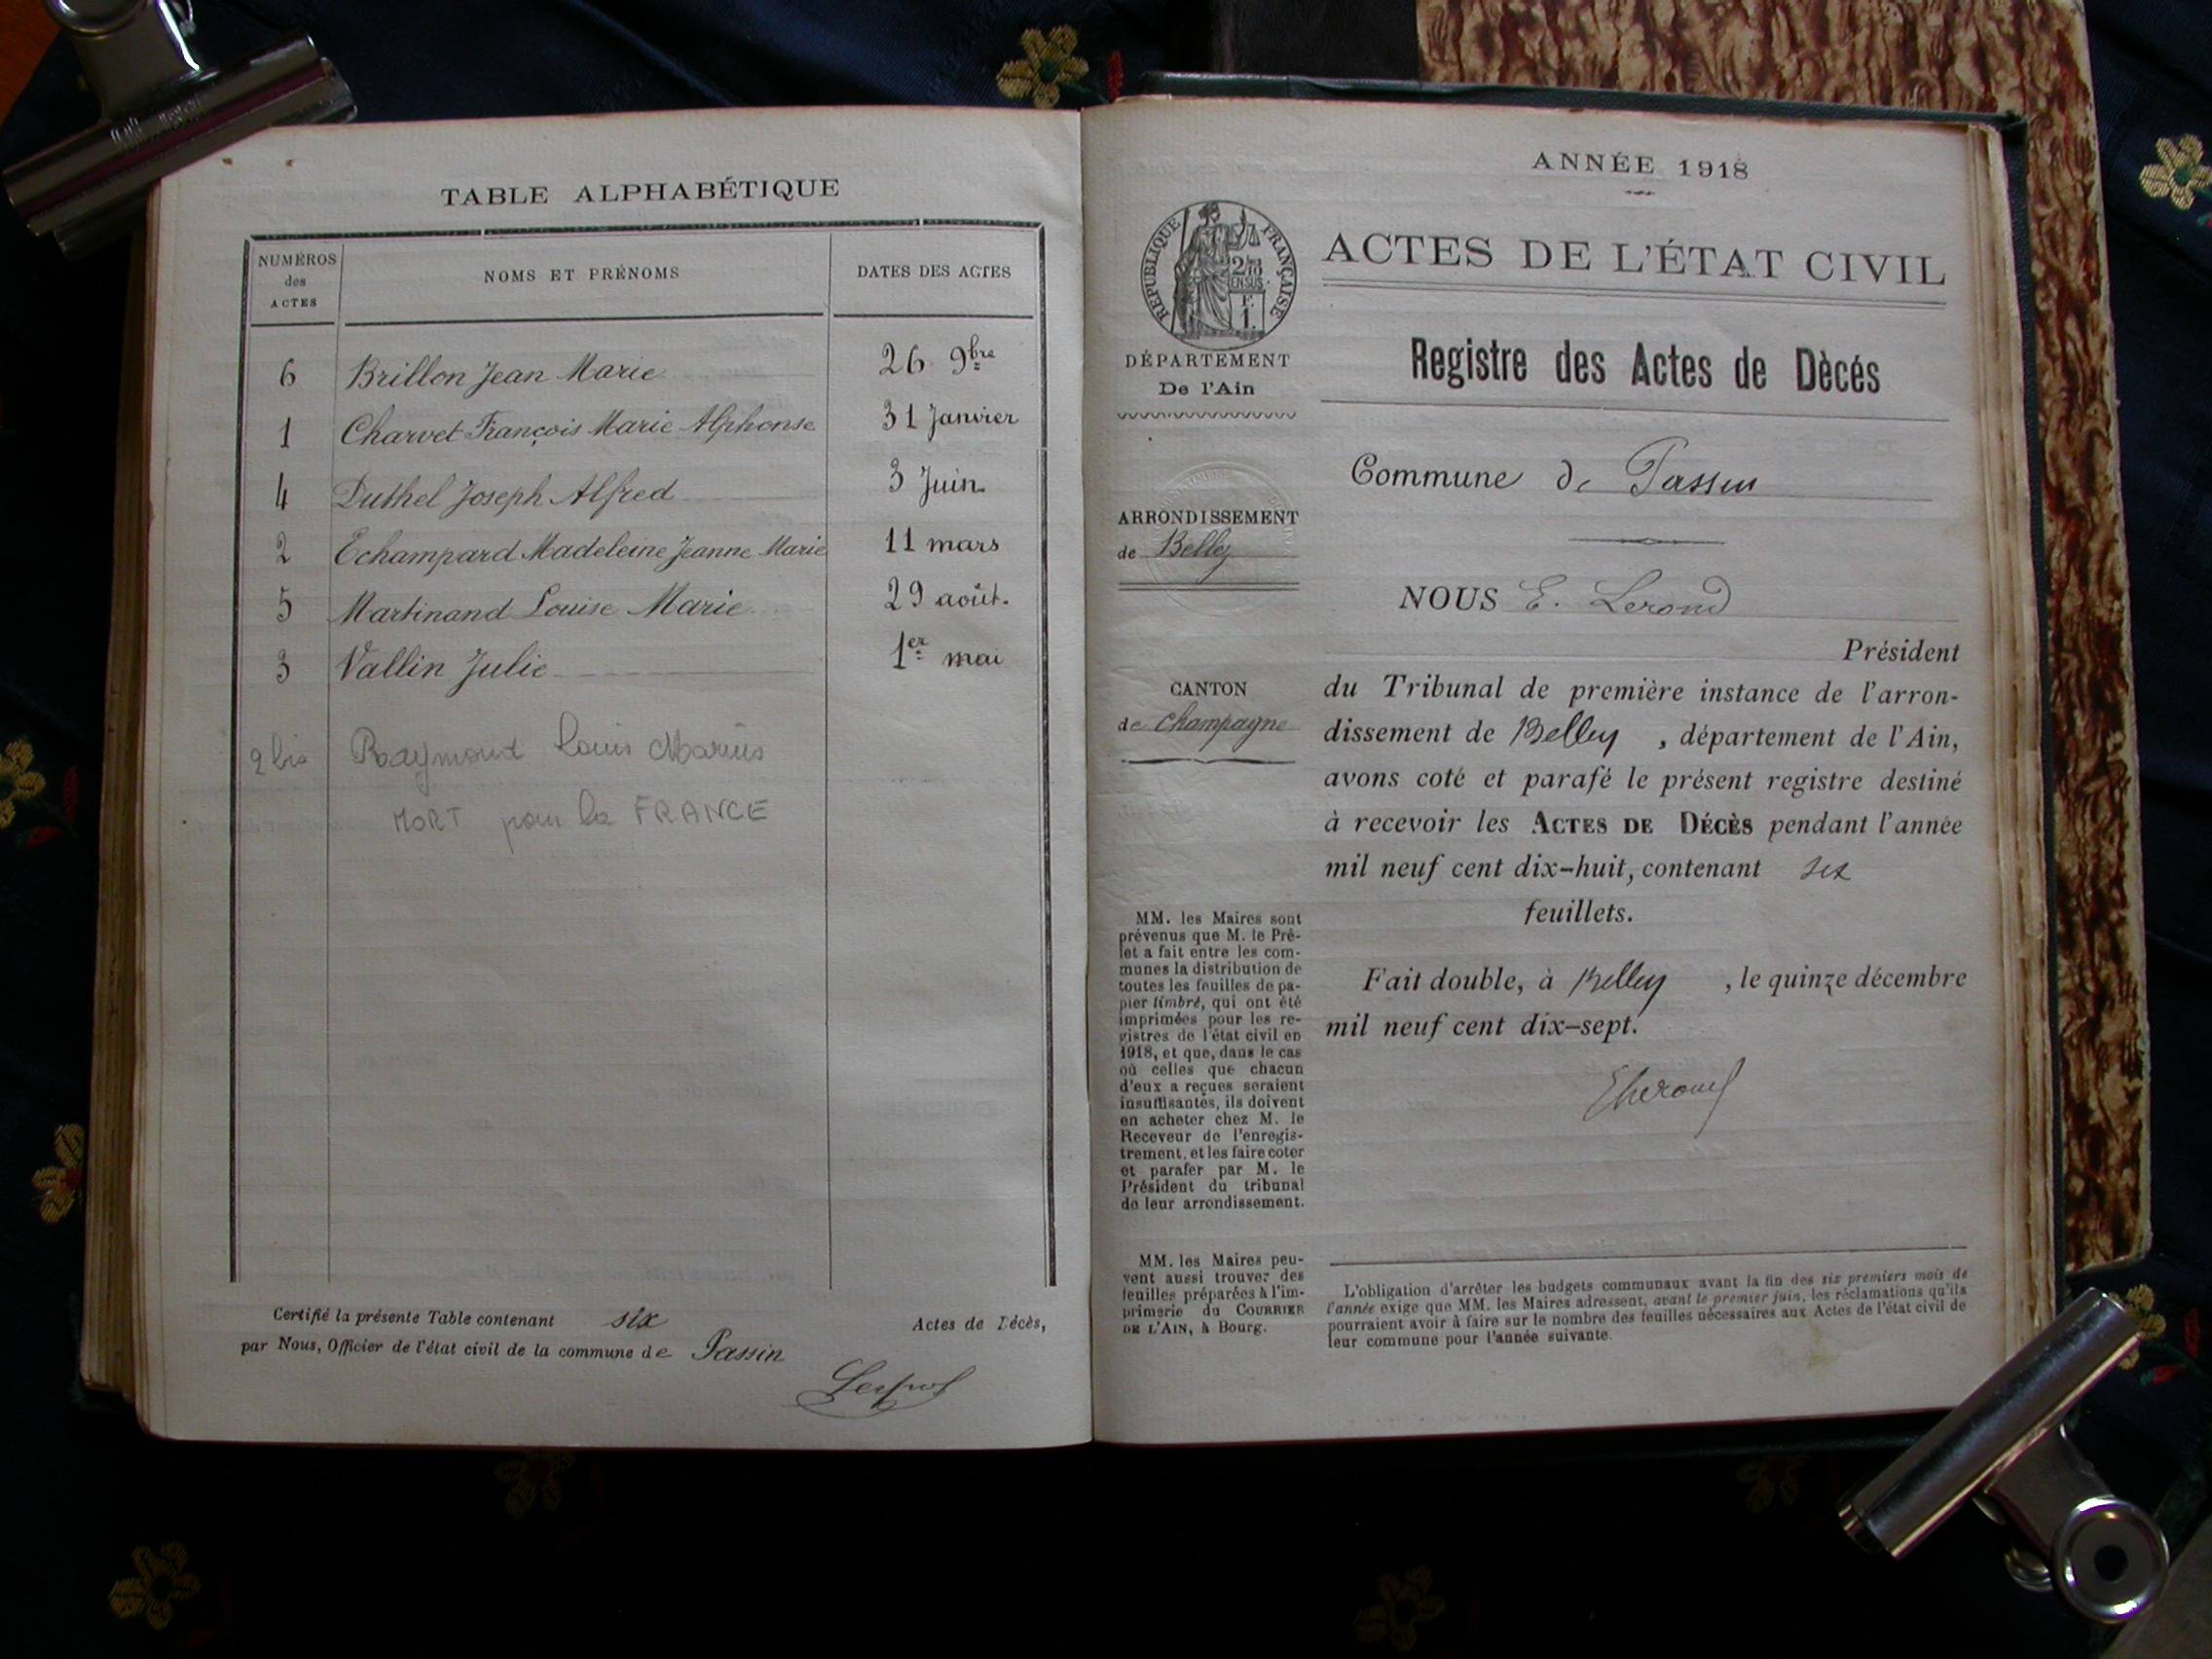 TABLE ALPHABÉTIQUE
NUMÉROS des ACTES
NOMS ET PRÉNOMS
DATES DES ACTES
6 Brillon Jean Marie 26 9bre
1 Charvet François Marie Alphonse 31 Janvier
4 Duthel Joseph Alfred 3 Juin
2 Echampard Madeleine Jeanne Marie 11 mars
5 Martinand Louise Marie 29 août.
3 Vallin Julie 1er mai
2 bis Raymond Louis Marius
MORT pour la FRANCE
Certifié la présente Table contenant six Actes de Décès,
par Nous, Officier de l'état civil de la commune de Passin
ANNÉE 1918
RÉPUBLIQUE FRANÇAISE
2/10 EN SUS
F. 1.
DÉPARTEMENT
De l'Ain
ARRONDISSEMENT
de Belley
CANTON
de Champagne
MM. les Maires sont
prévenus que M. le Pré-
fet a fait entre les com-
munes la distribution de
toutes les feuilles de pa-
pier timbré, qui ont été
imprimées pour les re-
gistres de l'état civil en
1918, et que, dans le cas
où celles que chacun
d'eux a reçues seraient
insuffisantes, ils doivent
en acheter chez M. le
Receveur de l'enregis-
trement, et les faire coter
et parafer par M. le
Président du tribunal
de leur arrondissement.
MM. les Maires peu-
vent aussi trouver des
feuilles préparées à l'im-
primerie du COURRIER
DE L'AIN, à Bourg.
ACTES DE L'ÉTAT CIVIL
Registre des Actes de Dècés
Commune de Passin
NOUS E. Lerond
Président
du Tribunal de première instance de l'arron-
dissement de Belley, département de l'Ain,
avons coté et parafé le présent registre destiné
à recevoir les ACTES DE DÉCÈS pendant l'année
mil neuf cent dix-huit, contenant six
feuillets.
Fait double, à Belley, le quinze décembre
mil neuf cent dix-sept.
L'obligation d'arrêter les budgets communaux avant la fin des six premiers mois de
l'année exige que MM. les Maires adressent, avant le premier juin, les réclamations qu'ils
pourraient avoir à faire sur le nombre des feuilles nécessaires aux Actes de l'état civil de
leur commune pour l'année suivante.